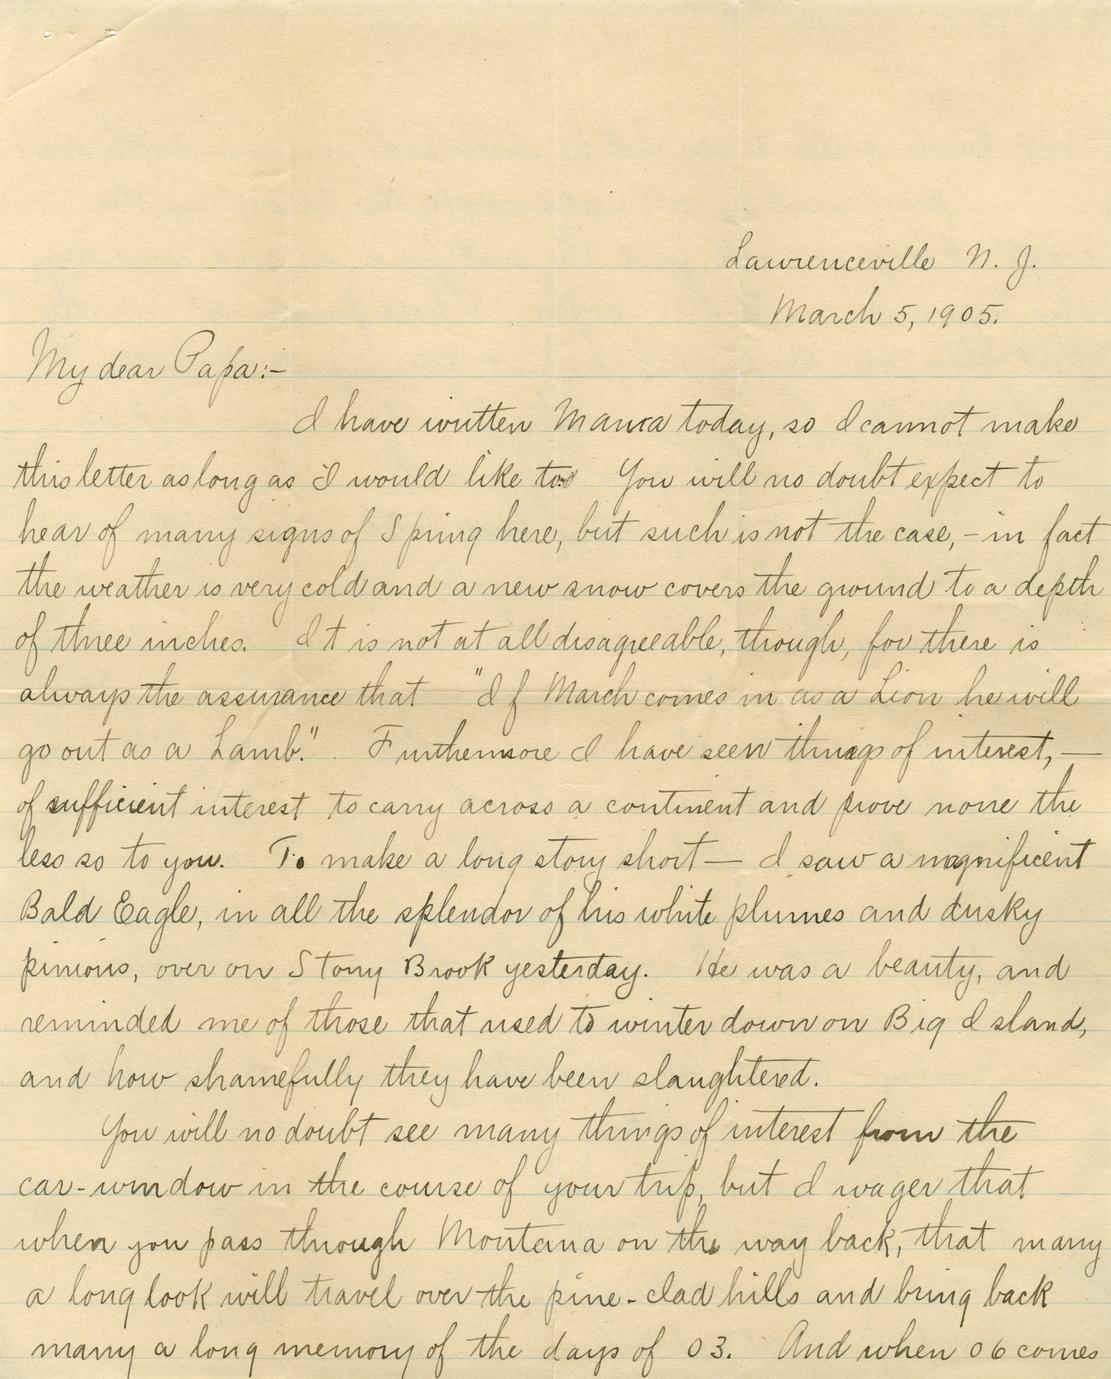 Lawrenceville N. J.
March 5, 1905.
My dear Papa:-
I have written Mama today, so I cannot make
this letter as long as I would like to. You will no doubt expect to
hear of many signs of Spring here, but such is not the case, - in fact
the weather is very cold and a new snow covers the ground to a depth
of three inches. It is not at all disagreeable, though, for there is
always the assurance that "If March comes in as a Lion he will
go out as a Lamb." Furthermore I have seen things of interest, —
of sufficient interest to carry across a continent and prove none the
less so to you. To make a long story short — I saw a magnificent
Bald Eagle, in all the splendor of his white plumes and dusky
pinions, over on Stony Brook yesterday. He was a beauty, and
reminded me of those that used to winter down on Big Island,
and how shamefully they have been slaughtered.
You will no doubt see many things of interest from the
car-window in the course of your trip, but I wager that
when you pass through Montana on the way back, that many
a long look will travel over the pine-clad hills and bring back
many a long memory of the days of 03. And when 06 comes